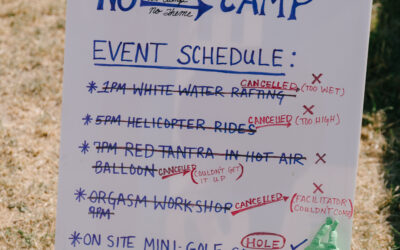 NO CAMP
No Theme
EVENT SCHEDULE:
* 1PM WHITE WATER RAFTING CANCELLED (TOO WET)
* 5PM HELICOPTER RIDES CANCELLED (TOO HIGH)
* 7PM RED TANTRA IN HOT AIR
BALLOON CANCELLED (COULDN'T GET
IT UP)
* ORGASM WORKSHOP CANCELLED (FACILITATOR
9PM COULDN'T COME)
* ON SITE MINI-GOLF HOLE